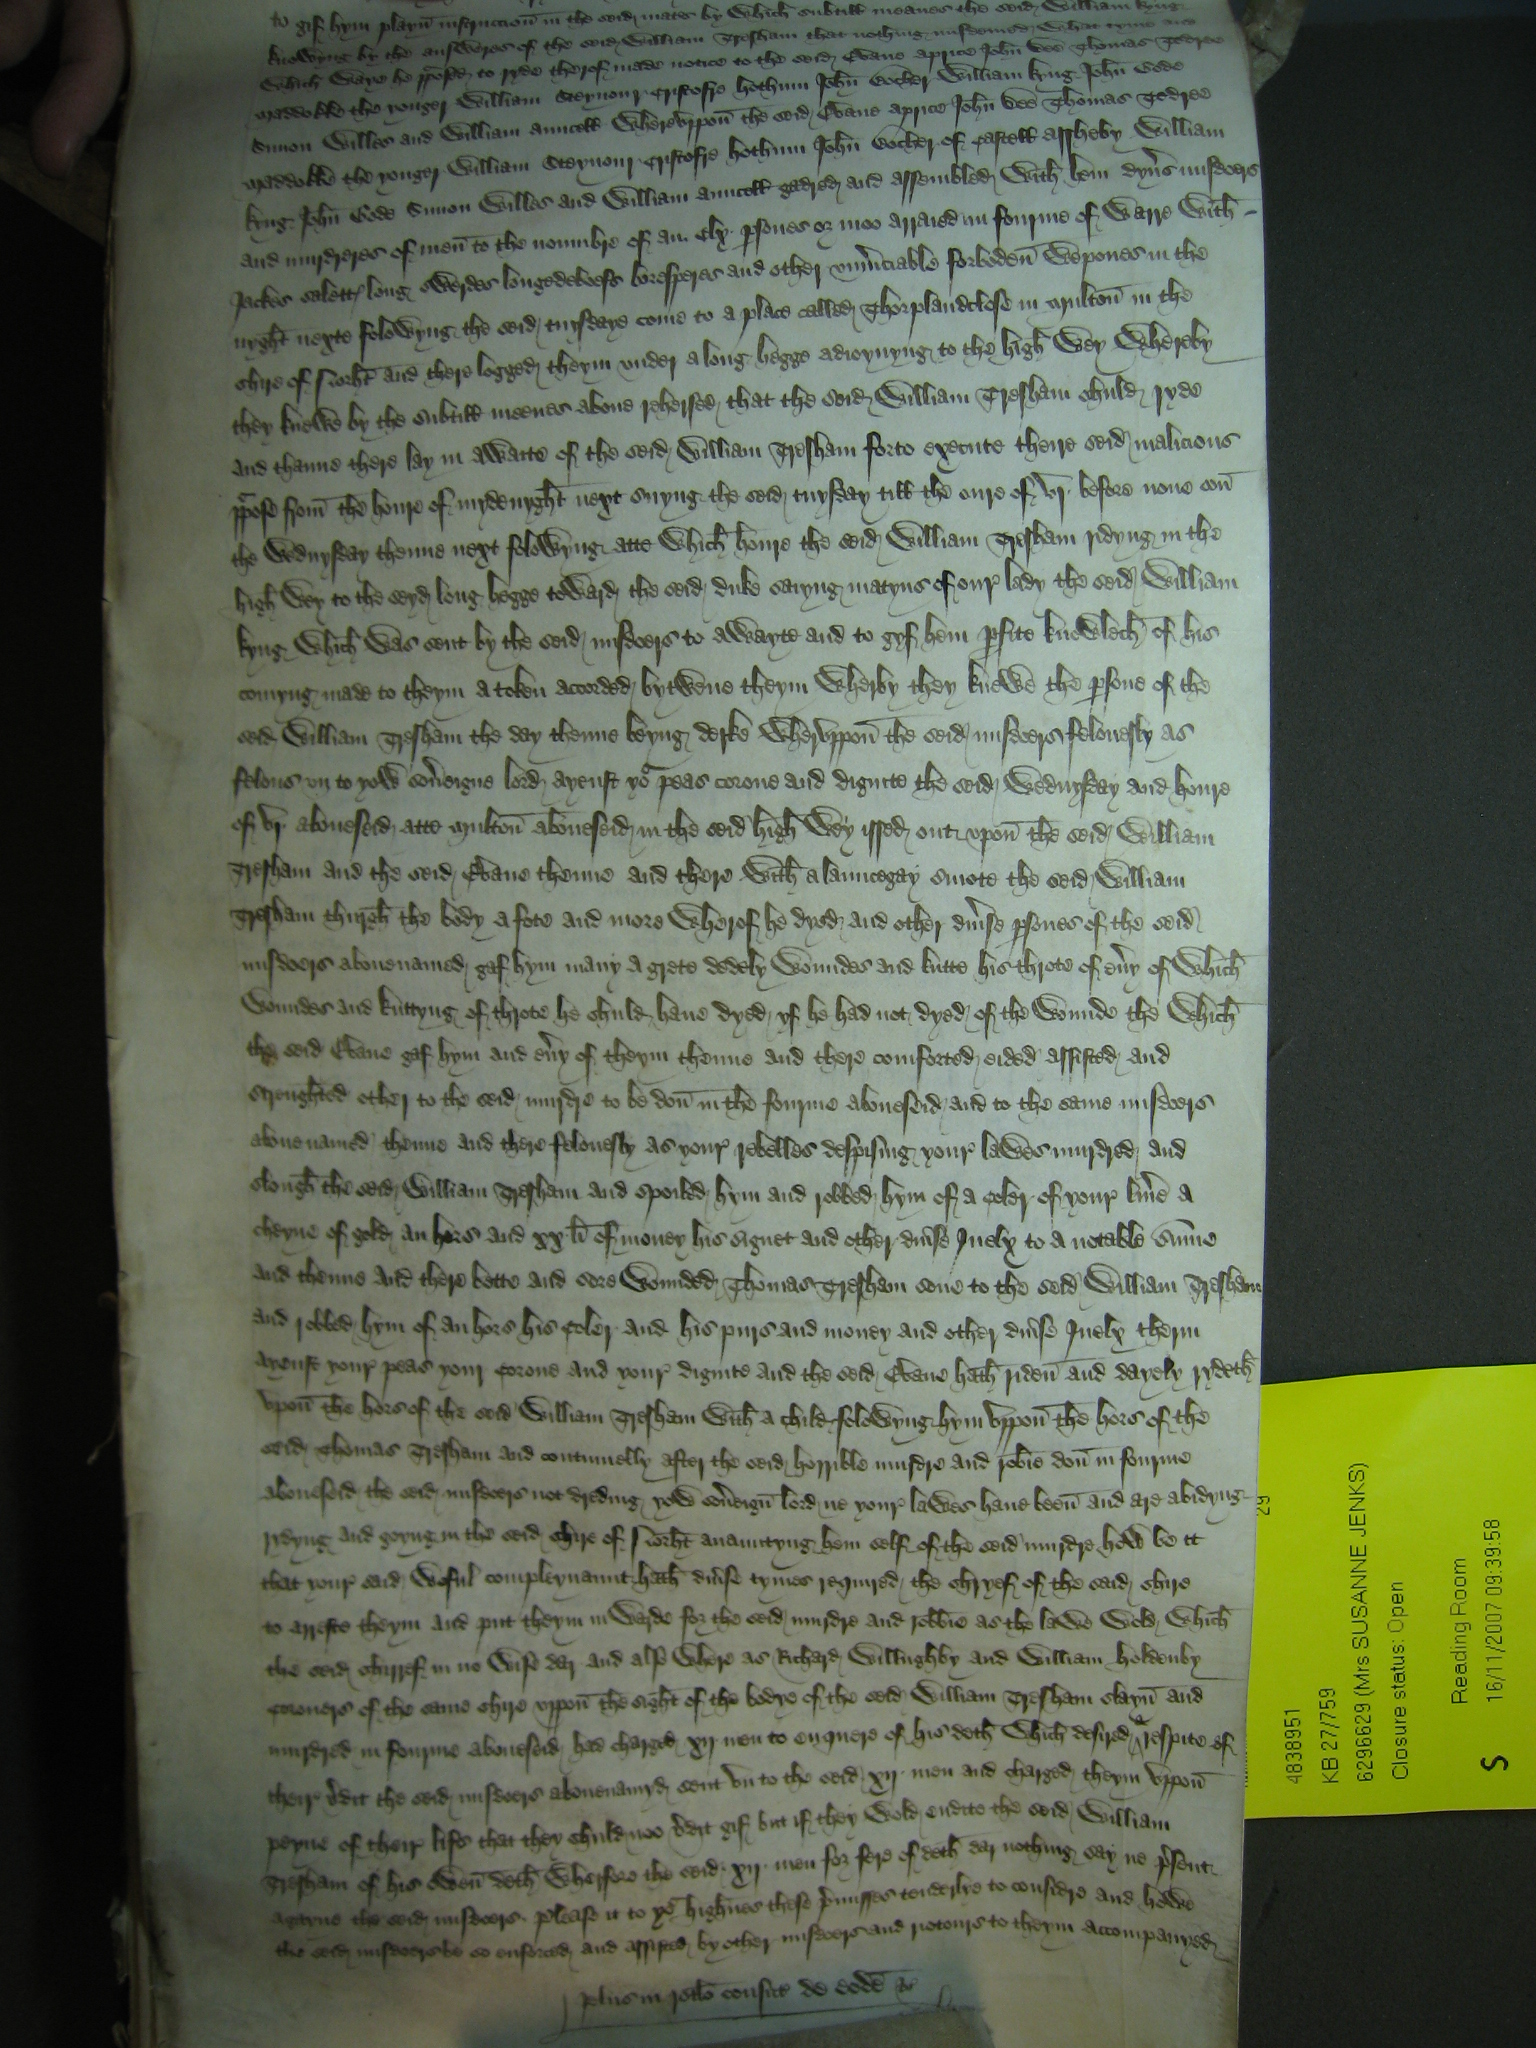 to gif hym playn instruccion in the seid mater by Which subtill meanes the seid William kyng
knowyng by the answeres of the seid William Tresham that nothing misdemed What tyme and
Which Waye he pposed to ryde therof made notice to the seid Evane aprice John Vee Thomas Tedree
maddokke the yonger William Steynour Cristofre hothum John Cocker William kyng John Code
Simon Willes and William anncell Wheruppon the seid Evane aprice John Vee Thomas Tedree
maddokke the yonger William Steynour Cristofre hothum John Cocker of Castell assheby William
kyng John Code Simon Willes and William anncell gadred and assembled With hem dyvs misdoers
and murdreres of men to the nombre of an Clx psones or moo arraied in fourme of Warre With
Jackes salettes long swerdes longedebeefs boresperes and other unmciable forboden Wepones in the
nyght nexte folowyng the seid tuysdaye come to a place called Thorplandclose in multon in the
shire of Norht and there logged theym under a long hegge adioynyng to the high Wey Whereby
they knewe by the subtill meenes above rehersed that the seid William Tresham shuld ryde
and thanne there lay in awatte of the seid William Tresham forto execute theire seid malicious
ppose from the houre of mydenyght next suyng the seid tuysday till the oure of vj before none on
the Wednysday thenne next folowyng atte Which houre the seid William Tresham ridyng in the
high Wey to the seyd long hegge toward the seid duke saiyng matyns of our lady the seid William
kyng Which Was sent by the seid misdoers to awayte and to gyf hem pfite knowlech of his
comyng made to theym a token accorded bytwene theym Wherby they knewe the psone of the
seid William Tresham the day thenne beyng derke Wheruppon the seid misdoers felonesly as
felons un to yow soveigne lord ayenst yor peas corone and dignite the seid Wednysday and houre
of vj aboveseid atte multon aboveseid in the seid high Wey issed out upon the seid William
Tresham and the seid Evane thenne and there With a launcegay smote the seid William
Tresham thurgh the body a fote and more Wherof he dyed and other divse psones of the seid
misdoers abovenamed gaf hym many a grete dedely Woundes and kutte his throte of evy of Which
Woundes and kuttyng of throte he shuld have dyed yf he had not dyed of the Wounde the Which
the seid Evane gaf hym and evy of theym thenne and there comforted eided assisted and
strenghted other to the seid murdre to be don in the fourme aboveseid and to the same misdoers
abovenamed thenne and there felonesly as your rebelles despising your lawes murdred and
slough the seid William Tresham and spoiled hym and robbed hym of a Coler of your livre a
cheyne of gold an hors and xx li of money his signet and other divse Juelx to a notable Sume
and thenne and there bette and sore Wounded Thomas Tresham sone to the seid William Tresham
and robbed hym of an hors his Coler and his purs and money and other divse Juelx therin
ayenst your peas your Corone and your dignite and the seid Evane hath riden and dayely rydeth
upon the hors of the seid William Tresham With a child folowyng hym uppon the hors of the
seid Thomas Tresham and contynuelly after the seid horrible murdre and robie don in fourme
aboveseid the seid misdoers not dreding yow soveign lord ne your lawes have been and are abidyng
rydyng and goyng in the seid shire of Norht avauntyng hem self of the seid murdre how be it
that your said Woful compleynaunt hath divse tymes required the shryef of the said shire
to areste theym and put theym in Warde for the seid murdre and robbie as the lawe Wold Which
the seid shirref in no Wise dar and also Where as Richard Willughby and William holdenby
Coroners of the same shire uppon the sight of the bodye of the seid William Tresham slayn and
murdred in fourme aboveseid had charged xij men to enquere of his deth Which desired a respite of
their vdit the seid misdoers abovenamyd sent un to the seid xij men and charged theym uppon
peyne of their lifs that they shuld noo vdit gif but if they Wold endite the seid William
Tresham of his owen deth Wherfore the seid xij men for fere of deth dar nothing say ne psent
agayne the seid misdoers please it to yor highnes these pmisses tenderlye to considre and howe
the seid misdoers be so enforced and assisted by other misdoers and riotours to theym accompanyed
plus in rotlo consut de eode &c
29
4838951
KB 27/759
6296629 (Mrs SUSANNE JENKS)
Closure status: Open
Reading Room
16/11/2007 09:39:58
S